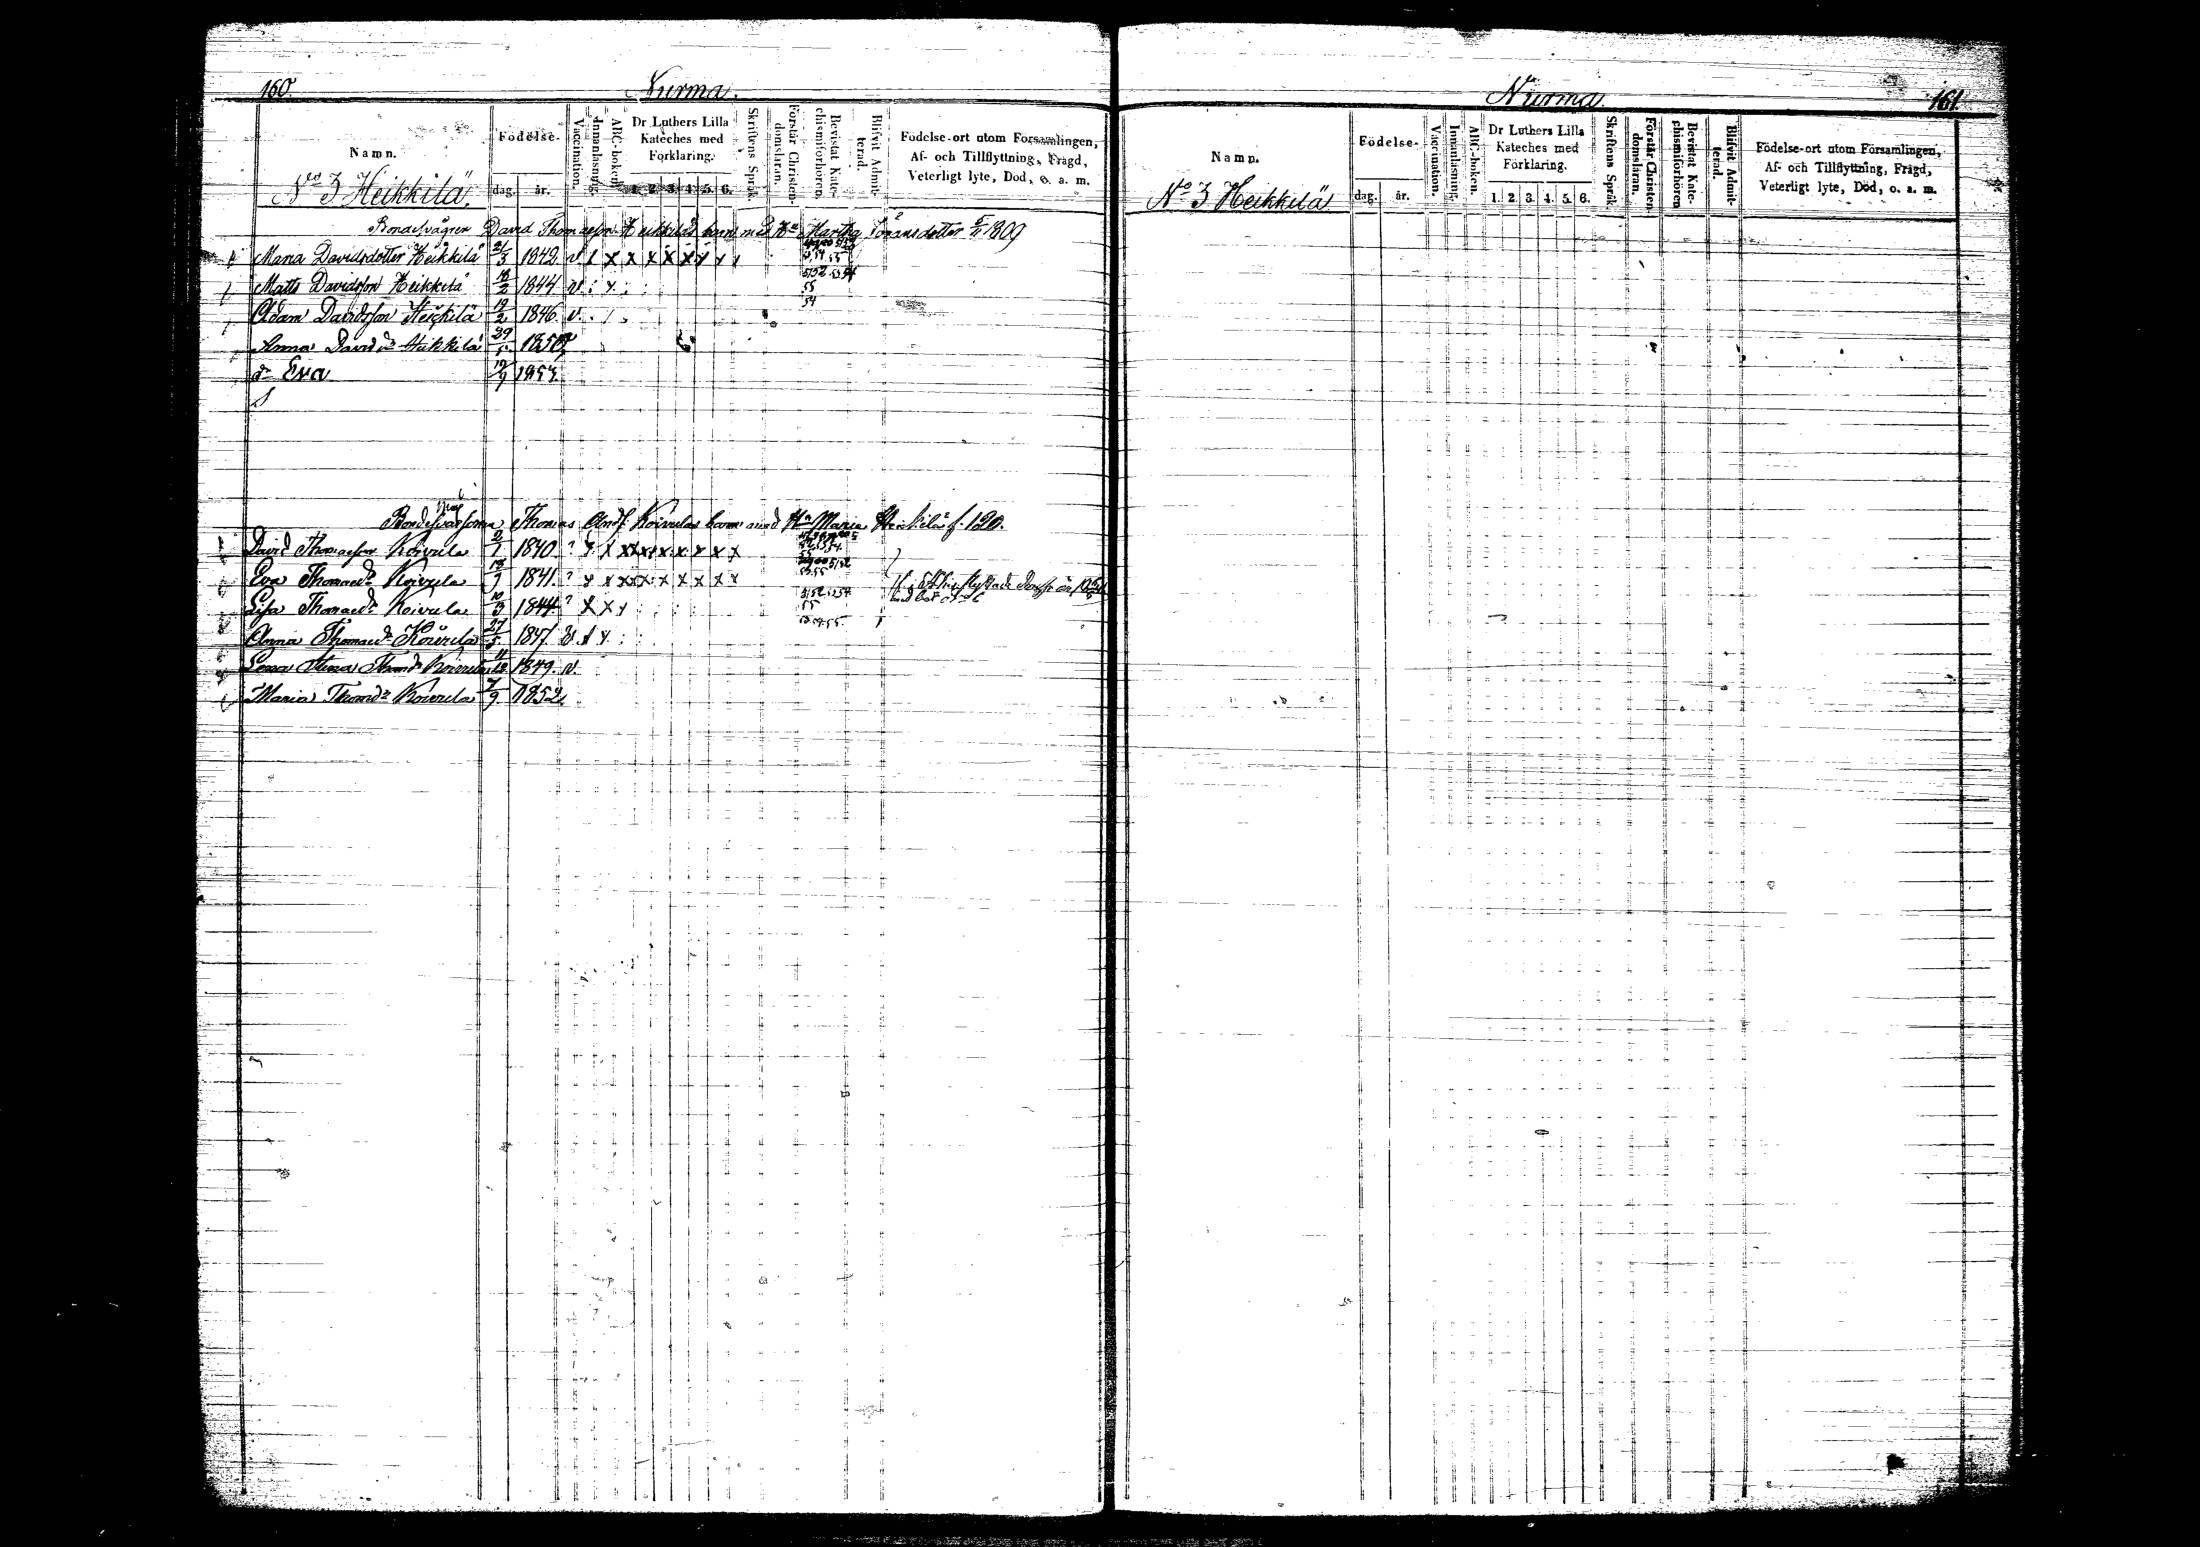 160.
Nurma.
Namn.
Födelse-
dag. år.
Vaccination.
Innanläsning.
ABC-boken.
Dr Luthers Lilla Kateches med Förklaring.
1. 2. 3. 4. 5. 6.
Skriftens Språk.
Förstår Christendomsläran.
Bevistat Katechismiförhören
Blifvit Admitterad.
Födelse-ort utom Församlingen,
Af- och Tillflyttning, Frägd,
Veterligt lyte, Död, o. a. m.
No 3 Heikkilä.
Bondesvågren David Thomasson Heikkiläs barn med Hu Martha Göransdotter 1809
Maria Davidsdotter Heikkilä 1842. v x x x x x
Matts Davidsson Heikkilä 18/2 1844 v.
Adam Davidsson Heikkilä 19/2 1846. v.
Anna Davidsdr Heikkilä 29/5 1850
do Eva 1853.
Thomas Andf. Koivulas barn med Hu Maria Heikkilä f. 120.
David Thomasson Koivula 2/1 1840. ?
Eva Thomaedr Koivula 1841. ?
Lisa Thomaedr Koivula 10/3 1844. ?
Anna Thomaedr Koivula 27/5 1847. v.
Lena Stina Thomdr Koivula 11/12 1849. v.
Maria Thomdr Koivula 7/9 1852.
Nurma.
161.
Namn.
Födelse-
dag. år.
Vaccination.
Innanläsning.
ABC-boken.
Dr Luthers Lilla Kateches med Förklaring.
1. 2. 3. 4. 5. 6.
Skriftens Språk.
Förstår Christendomsläran.
Bevistat Katechismiförhören
Blifvit Admitterad.
Födelse-ort utom Församlingen,
Af- och Tillflyttning, Frägd,
Veterligt lyte, Död, o. a. m.
No 3 Heikkilä